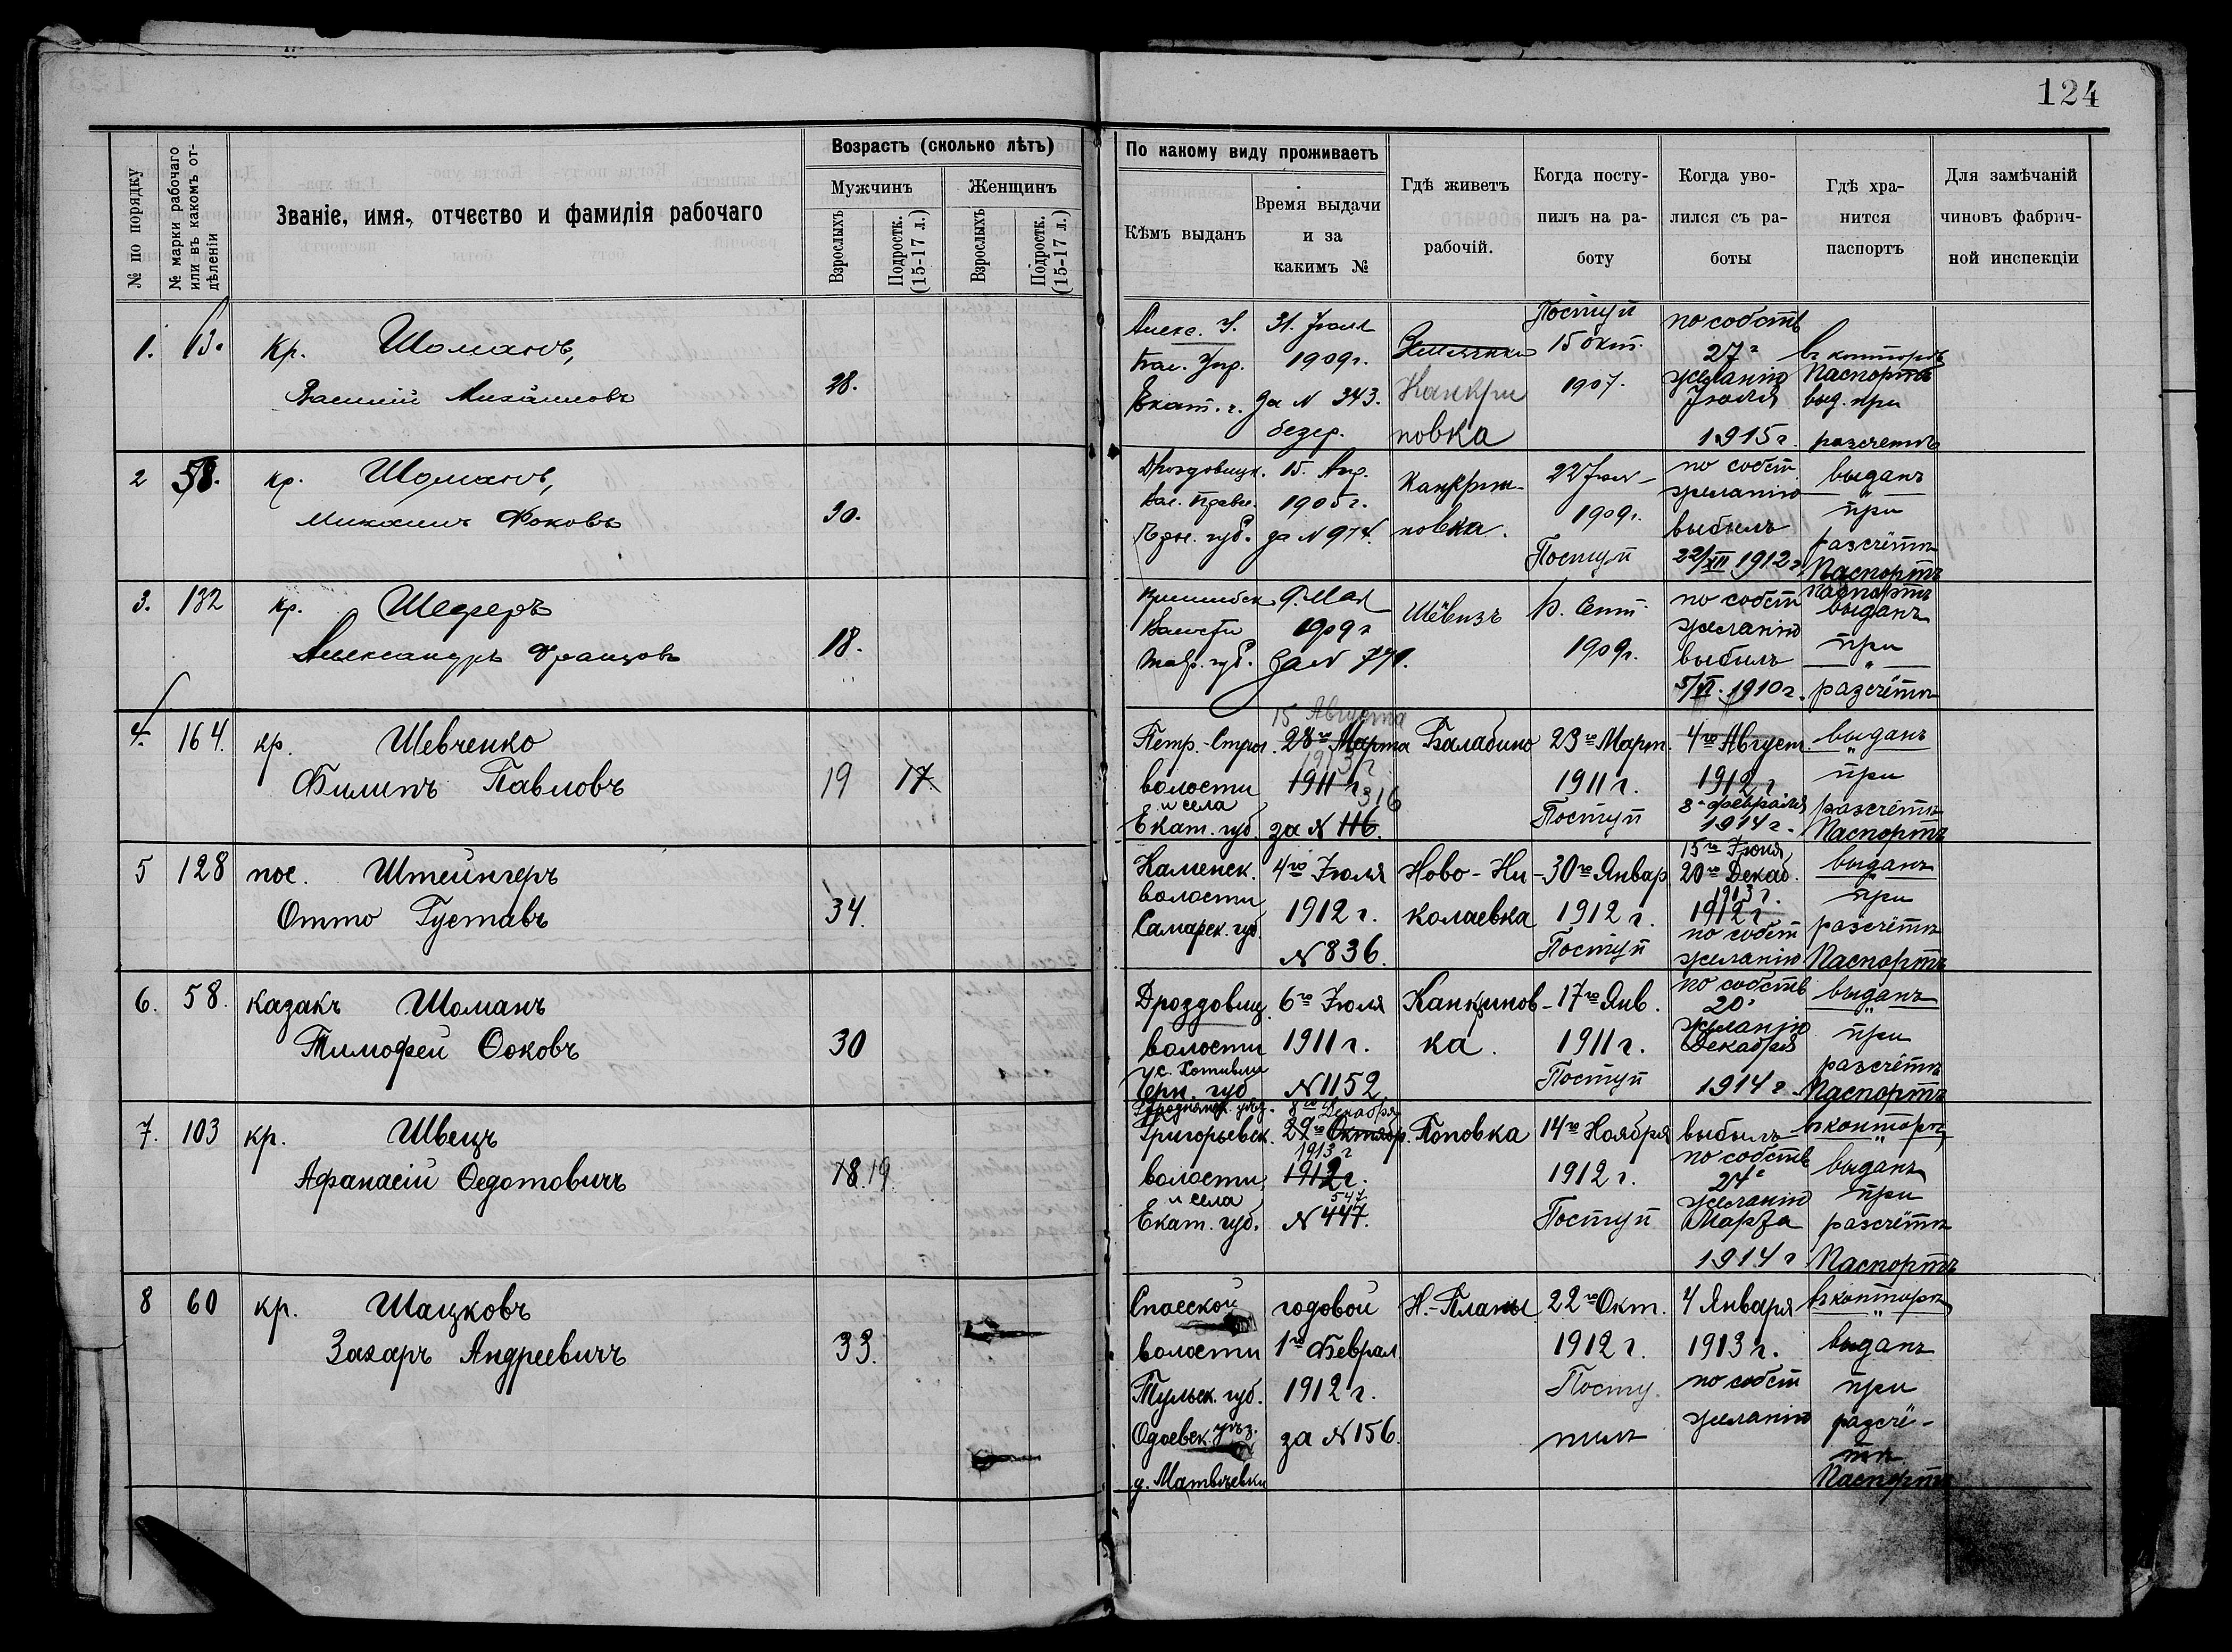 124
№ по порядку
№ марки рабочаго или въ какомъ отдѣленіи
Званіе, имя, отчество и фамилія рабочаго
Возрастъ (сколько лѣтъ)
Мужчинъ
Женщинъ
Взрослыхъ
Подростк. (15-17 л.)
Взрослыхъ
Подростк. (15-17 л.)
По какому виду проживаетъ
Кѣмъ выданъ
Время выдачи
и за
какимъ №
Гдѣ живетъ
рабочій.
Когда посту-
пилъ на ра-
боту
Когда уво-
лился съ ра-
боты
Гдѣ хра-
нится
паспортъ
Для замѣчаній
чиновъ фабрич-
ной инспекціи
1. 13. кр. Шоманъ,
Василій Михайловъ
28.
Алекс. У.
Екат. г.
31. Іюля
1909 г.
за N 343.
безср.
Канкри
новка
Поступ
15 окт.
1907.
по собств
27 г
желанію
Іюля
1915 г.
въ конторѣ
Паспортъ
выд. при
разсчетѣ
2 58. кр. Шоманъ,
Михаилъ Фоковъ
30.
Дроздовицк.
Вол. Правл.
Чрн. губ.
15. Апр.
1905 г.
за N 974.
Канкри-
новка.
22 Іюл
1909 г.
Поступ
по собст
желанію
выбылъ
22/XII 1912 г
выданъ
при
разсчётѣ
Паспортъ
3. 132 кр. Шеферъ
Александръ Францовъ
18.
Волости
Тавр. губ.
9. Мая
1909 г
за N 771.
Шёвизъ
Сент.
1909 г.
по собст
желанію
выбылъ
5/VI. 1910 г.
Паспортъ
выданъ
при
разсчётѣ
4. 164. кр. Шевченко
Филипъ Павловъ
19 17
Петр.-Строг.
волости
и села
Екат. губ
15 Августа
28го Марта
1913 г
1911 г.
316
за N 116.
Балабино
23го Март.
1911 г.
Поступ
4го Август.
1912 г
8го февраля
1914 г.
выданъ
при
разсчётѣ
Паспортъ
5 128 пос. Штейнгеръ
Отто Густавъ
34.
Каменск.
волости
Самарск. губ.
4го Іюля
1912 г.
N 836.
Ново-Ни-
колаевка
30го Январ
1912 г.
Поступ
15го Іюня
20го Декаб.
1913 г.
1912 г
по собст
желанію
выданъ
при
разсчётѣ
Паспортъ
6. 58. казакъ Шоманъ
Тимофей Ѳоковъ
30
Дроздовиц.
волости
с. Хотивли
Чрн. губ
Городнянск. уѣз.
6го Іюля
1911 г.
N 1152
Канкринов-
ка.
17го Янв.
1911 г.
Поступ
по собств
20г
желанію
Декабря
1914 г.
выданъ
при
разсчётѣ
Паспортъ
7. 103 кр. Швецъ
Афанасій Ѳедотовичъ
18. 19.
Григорьевск.
волости
и села
Екат. губ.
8го Декабря
29го Октябр.
1913 г
1912 г.
547
N 447.
Поповка
14го Ноября
1912 г.
Поступ
выбылъ
по собств
24г
желанію
Марта
1914 г
въ конторѣ
выданъ
при
разсчётѣ
Паспортъ
8 60 кр. Шацковъ
Захаръ Андреевичъ
33.
Спасской
волости
Тульск. губ.
Одоевск. уѣз.
д. Матвѣевки
годовой
1го Феврал.
1912 г.
за N 156.
Н.-Планы
22го Окт.
1912 г.
Посту.
пилъ
4 Января
1913 г.
по собст
желанію
въ конторѣ
выданъ
при
разсчё-
тѣ
Паспортъ